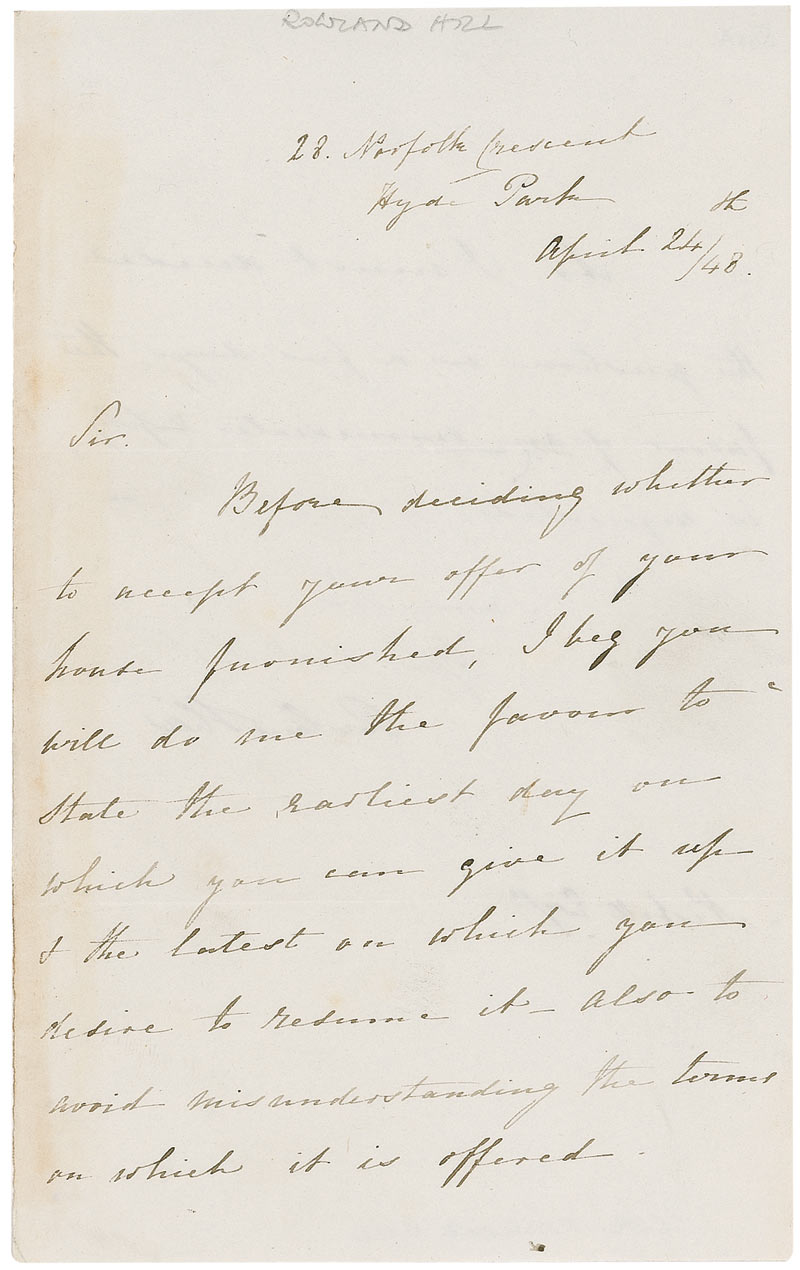 ROWLAND HILL
28. Norfolk Crescent
Hyde Park
April 24th/48.
Sir.
Before deciding whether
to accept your offer of your
house furnished, I beg you
will do me the favour to
state the earliest day on
which you can give it up
& the latest on which you
desire to resume it – Also to
avoid misunderstanding the terms
on which it is offered.